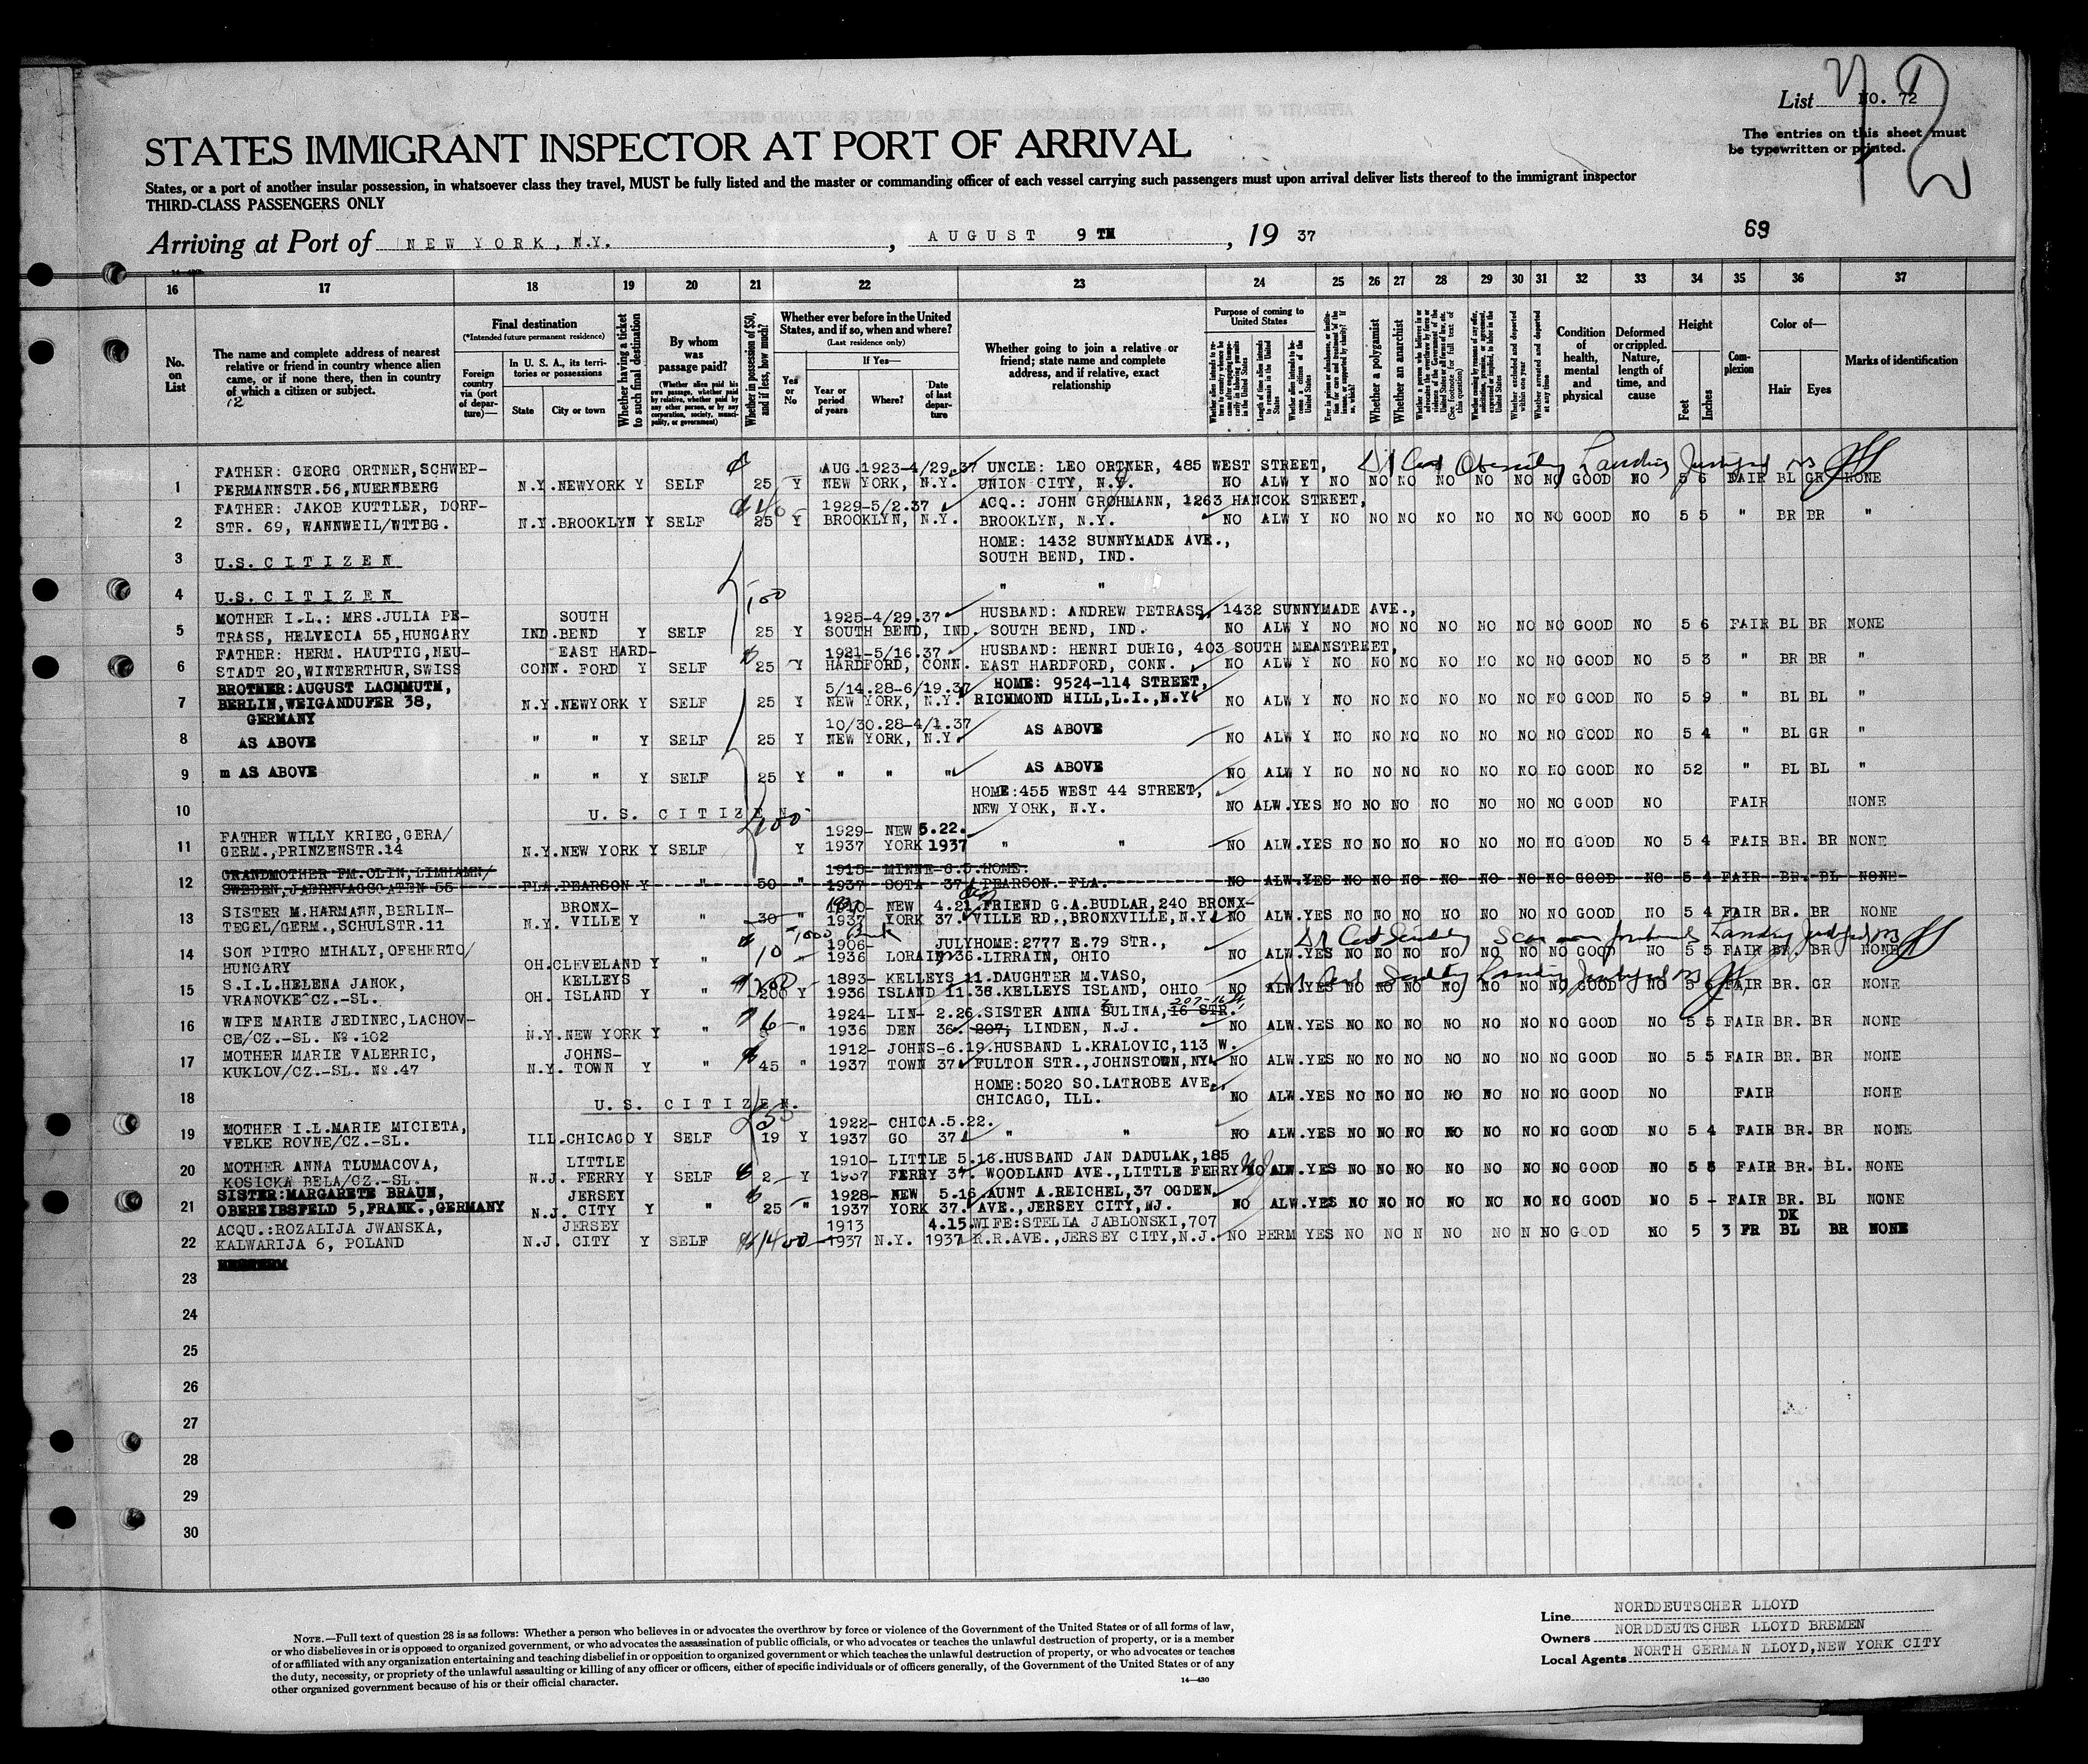 List NO. 72
The entries on this sheet must
be typewritten or printed.
STATES IMMIGRANT INSPECTOR AT PORT OF ARRIVAL
States, or a port of another insular possession, in whatsoever class they travel, MUST be fully listed and the master or commanding officer of each vessel carrying such passengers must upon arrival deliver lists thereof to the immigrant inspector
THIRD-CLASS PASSENGERS ONLY
69
Arriving at Port of NEW YORK, N.Y. , AUGUST 9 TH , 19 37
16 17 18 19 20 21 22 23 24 25 26 27 28 29 30 31 32 33 34 35 36 37
No. on List
The name and complete address of nearest
relative or friend in country whence alien
came, or if none there, then in country
of which a citizen or subject.
12
Final destination
(*Intended future permanent residence)
Foreign country via (port of departure)—
In U. S. A., its territories or possessions
State
City or town
Whether having a ticket to such final destination
By whom was passage paid?
(Whether alien paid his own passage, whether paid by relative, whether paid by any other person, or by any corporation, society, municipality, or government)
Whether in possession of $50, and if less, how much?
Whether ever before in the United States, and if so, when and where?
(Last residence only)
Yes or No
If Yes—
Year or period of years
Where?
Date of last departure
Whether going to join a relative or
friend; state name and complete
address, and if relative, exact
relationship
Purpose of coming to United States
Whether a polygamist
Whether an anarchist
Condition of health, mental and physical
Deformed or crippled. Nature, length of time, and cause
Height
Feet
Inches
Complexion
Color of—
Hair
Eyes
Marks of identification
FATHER: GEORG ORTNER, SCHWEP- AUG.1923-4/29.37 UNCLE: LEO ORTNER, 485 WEST STREET,
1 PERMANNSTR.56, NUERNBERG N.Y. NEWYORK Y SELF 25 Y NEW YORK, N.Y. UNION CITY, N.Y. NO ALW Y NO NO NO NO NO NO NO GOOD NO 5 6 FAIR BL GR NONE
FATHER: JAKOB KUTTLER, DORF- 1929-5/2.37 ACQ.: JOHN GROHMANN, 1263 HANCOK STREET,
2 STR. 69, WANNWEIL/WTTBG. N.Y. BROOKLYN Y SELF 25 Y BROOKLYN, N.Y. BROOKLYN, N.Y. NO ALW Y NO NO NO NO NO NO NO GOOD NO 5 5 " BR BR "
HOME: 1432 SUNNYMADE AVE.,
3 U.S. CITIZEN SOUTH BEND, IND.
4 U.S. CITIZEN " "
100
MOTHER I.L.: MRS.JULIA PE- SOUTH 1925-4/29.37 HUSBAND: ANDREW PETRASS, 1432 SUNNYMADE AVE.,
5 TRASS, HELVECIA 55, HUNGARY IND. BEND Y SELF 25 Y SOUTH BEND, IND. SOUTH BEND, IND. NO ALW Y NO NO NO NO NO NO NO GOOD NO 5 6 FAIR BL BR NONE
FATHER: HERM. HAUPTIG, NEU- EAST HARD- 1921-5/16.37 HUSBAND: HENRI DURIG, 403 SOUTH MEANSTREET,
6 STADT 20, WINTERTHUR, SWISS CONN. FORD Y SELF 25 Y HARDFORD, CONN. EAST HARDFORD, CONN. NO ALW Y NO NO NO NO NO NO NO GOOD NO 5 3 " BR BR "
BROTHER: AUGUST LACHMUTH, 5/14.28-6/19.37 HOME: 9524-114 STREET,
7 BERLIN, WEIGANDUFER 38, N.Y. NEWYORK Y SELF 25 Y NEW YORK, N.Y. RICHMOND HILL, L.I., N.Y. NO ALW Y NO NO NO NO NO NO NO GOOD NO 5 9 " BL BL "
GERMANY 10/30.28-4/1.37
8 AS ABOVE " " Y SELF 25 Y NEW YORK, N.Y. AS ABOVE NO ALW Y NO NO NO NO NO NO NO GOOD NO 5 4 " BL GR "
9 m AS ABOVE " " Y SELF 25 Y " " " AS ABOVE NO ALW Y NO NO NO NO NO NO NO GOOD NO 52 " BL BL "
HOME:455 WEST 44 STREET,
10 U. S. CITIZEN. NEW YORK, N.Y. NO ALW.YES NO NO NO NO NO NO NO GOOD NO FAIR NONE
100
FATHER WILLY KRIEG, GERA/ 1929- NEW 5.22.
11 GERM., PRINZENSTR.14 N.Y. NEW YORK Y SELF Y 1937 YORK 1937 " " NO ALW.YES NO NO NO NO NO NO NO GOOD NO 5 4 FAIR BR. BR NONE
GRANDMOTHER FM.OLIN, LIMHAMN/ 1915- MINNE- 6.5. HOME:
12 SWEDEN, JAERNVAGSGATEN 55 FLA. PEARSON Y " 50 " 1937 SOTA 37 PEARSON. FLA. NO ALW.YES NO NO NO NO NO NO NO GOOD NO 5 4 FAIR BR. BL NONE
BRONX- NEW 4.21. FRIEND G.A.BUDLAR, 240 BRONX-
13 SISTER M.HARMANN, BERLIN- N.Y. VILLE Y " 30 " 1937 YORK 37. VILLE RD., BRONXVILLE, N.Y. NO ALW.YES NO NO NO NO NO NO NO GOOD NO 5 4 FAIR BR. BR NONE
TEGEL/GERM., SCHULSTR.11
14 SON PITRO MIHALY, OFEHERTO/ OH. CLEVELAND Y " 10 " 1906- JULY HOME: 2777 E.79 STR.,
HUNGARY 1936 LORAIN 36. LIRRAIN, OHIO NO ALW.YES NO NO NO NO NO NO NO GOOD NO 5 5 FAIR BR. BR NONE
S.I.L. HELENA JANOK, KELLEYS 1893- KELLEYS 11. DAUGHTER M.VASO,
15 VRANOVKE CZ.-SL. OH. ISLAND Y " 200 Y 1936 ISLAND 11.36. KELLEYS ISLAND, OHIO NO ALW.YES NO NO NO NO NO NO NO GOOD NO 5 6 FAIR BR. GR NONE
207-16
16 WIFE MARIE JEDINEC, LACHOV- 1924- LIN- 2.26. SISTER ANNA BULINA, 16 STR.
CE/CZ.-SL. No.102 N.Y. NEW YORK Y " 6 " 1936 DEN 36. 207, LINDEN, N.J. NO ALW.YES NO NO NO NO NO NO NO GOOD NO 5 5 FAIR BR. BR NONE
MOTHER MARIE VALERRIC, JOHNS- 1912- JOHNS- 6.19. HUSBAND L.KRALOVIC, 113 W.
17 KUKLOV/CZ.-SL. No.47 N.Y. TOWN Y " 45 " 1937 TOWN 37 FULTON STR., JOHNSTOWN, NY NO ALW.YES NO NO NO NO NO NO NO GOOD NO 5 5 FAIR BR. BR NONE
HOME: 5020 SO.LATROBE AVE.
18 U. S. CITIZEN. CHICAGO, ILL. NO ALW.YES NO NO NO NO NO NO NO GOOD NO FAIR NONE
MOTHER I.L.MARIE MICIETA, 1922- CHICA. 5.22.
19 VELKE ROVNE/CZ.-SL. ILL. CHICAGO Y SELF 19 Y 1937 GO 37 " " NO ALW.YES NO NO NO NO NO NO NO GOOD NO 5 4 FAIR BR. BR NONE
MOTHER ANNA TLUMACOVA, LITTLE 1910- LITTLE 5.16. HUSBAND JAN DADULAK, 185
20 KOSICKA BELA/CZ.-SL. N.J. FERRY Y SELF 2 Y 1937 FERRY 37. WOODLAND AVE., LITTLE FERRY NO ALW.YES NO NO NO NO NO NO NO GOOD NO 5 5 FAIR BR. BL. NONE
SISTER: MARGARETE BRAUN, JERSEY 1928- NEW 5.16. AUNT A.REICHEL, 37 OGDEN
21 OBEREIBSFELD 5, FRANK., GERMANY N.J. CITY Y " 25 " 1937 YORK 37. AVE., JERSEY CITY, NJ. NO ALW.YES NO NO NO NO NO NO NO GOOD NO 5 - FAIR BR. BL NONE
ACQU.: ROZALIJA JWANSKA, JERSEY 1913 4.15. WIFE: STELLA JABLONSKI, 707 DK
22 KALWARIJA 6, POLAND N.J. CITY Y SELF 1937 N.Y. 1937 R.R.AVE., JERSEY CITY, N.J. NO PERM YES NO NO N NO NO N NO GOOD NO 5 3 FR BL BR NONE
23
24
25
26
27
28
29
30
NOTE.—Full text of question 28 is as follows: Whether a person who believes in or advocates the overthrow by force or violence of the Government of the United States or of all forms of law,
or who disbelieves in or is opposed to organized government, or who advocates the assassination of public officials, or who advocates or teaches the unlawful destruction of property, or is a member
of or affiliated with any organization entertaining and teaching disbelief in or opposition to organized government or which teaches the unlawful destruction of property, or who advocates or teaches
the duty, necessity, or propriety of the unlawful assaulting or killing of any officer or officers, either of specific individuals or of officers generally, of the Government of the United States or of any
other organized government because of his or their official character.
14—430
Line NORDDEUTSCHER LLOYD
Owners NORDDEUTSCHER LLOYD BREMEN
Local Agents NORTH GERMAN LLOYD, NEW YORK CITY